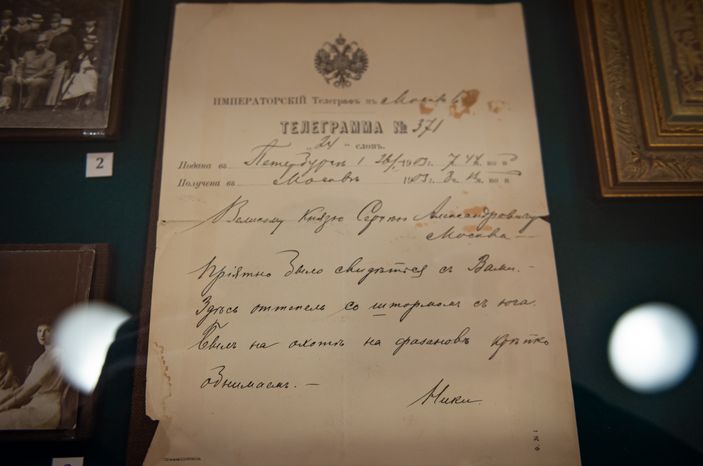 ИМПЕРАТОРСКІЙ Телеграфъ въ Москвѣ
ТЕЛЕГРАММА № 371
"24" словъ.
Подана въ Петербургѣ 1 1903 г. 7 ч. 47 м. по п
Получена въ Москвѣ 1903 г. 8 ч. м. по п
Великому Князю Сергѣю Александровичу
Москва —
Пріятно было свидѣтся съ Вами. —
Здѣсь оттепель со штормомъ съ юга.
Былъ на охотѣ на фазановъ крѣпко
обнимаемъ. —
Ники.
2